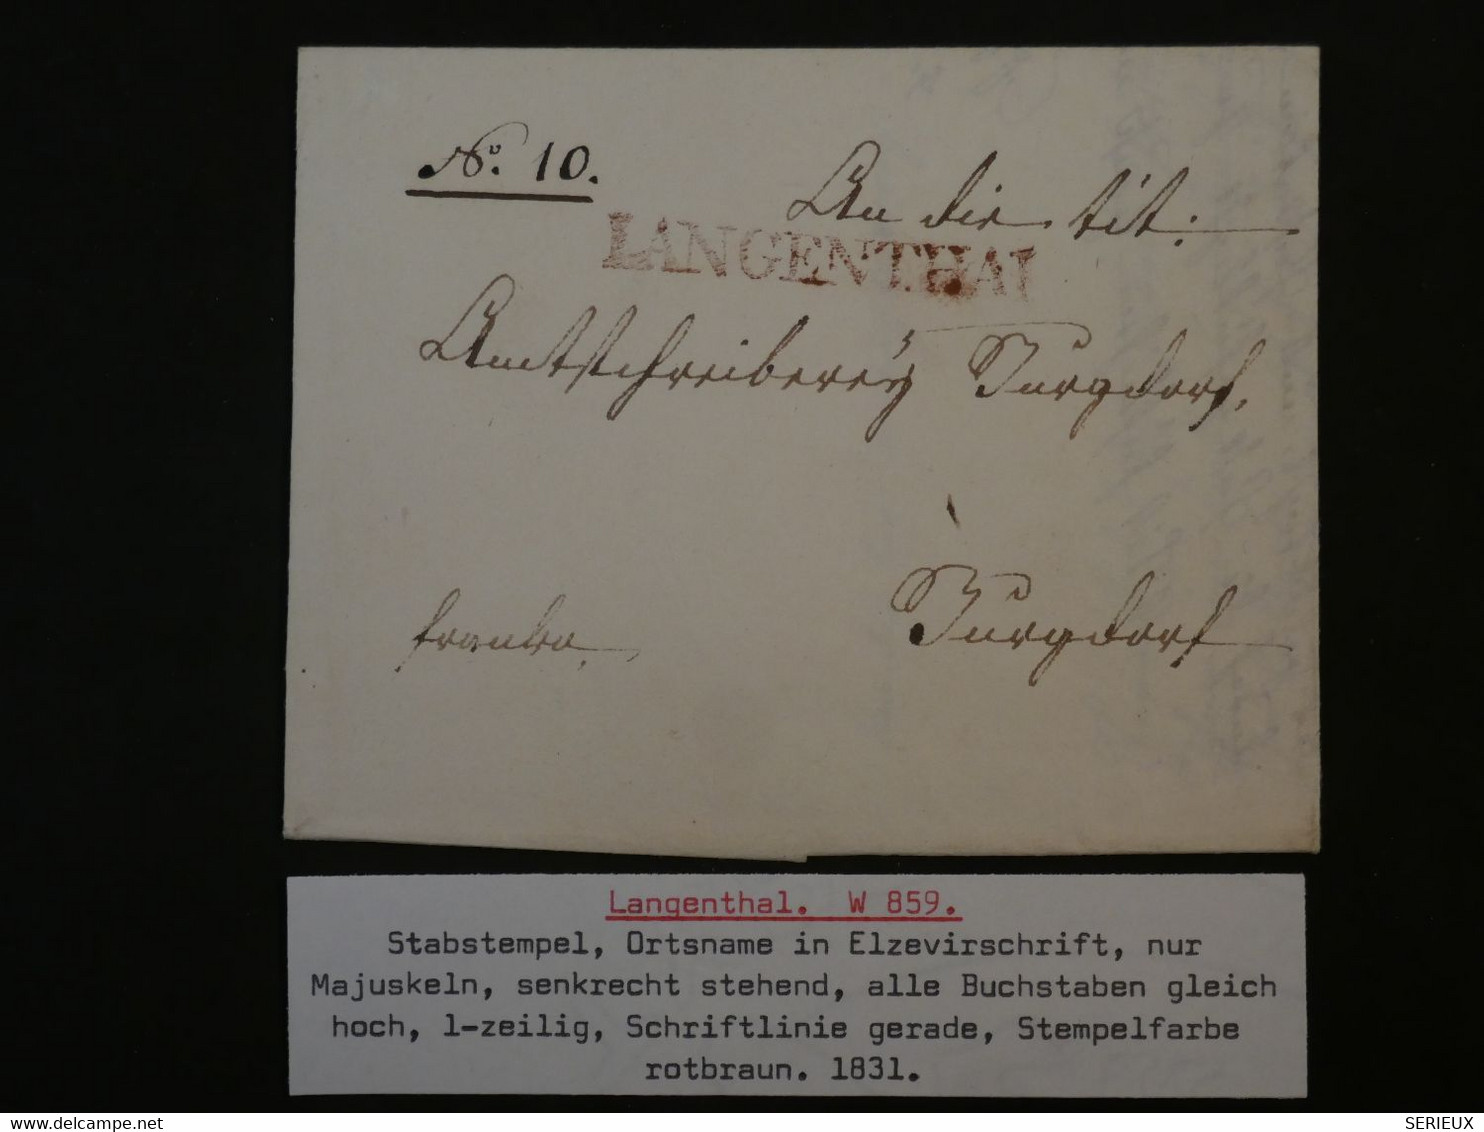 No. 10.
An die tit:
LANGENTHAL
Amtschreiberey Burgdorf,
Burgdorf
franko,
Langenthal. W 859.
Stabstempel, Ortsname in Elzevirschrift, nur
Majuskeln, senkrecht stehend, alle Buchstaben gleich
hoch, 1-zeilig, Schriftlinie gerade, Stempelfarbe
rotbraun. 1831.
delcampe.net
SERIEUX